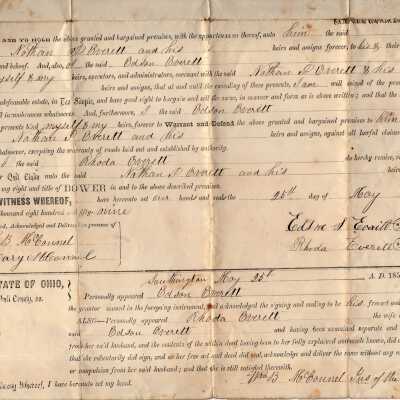 AND TO HOLD the above granted and bargained premises, with the appurtenances thereof, unto him the said
Nathan P Everett and his heirs and assigns forever, to his &
and behoof. And also, the said Edson Everett
myself & my heirs, executors, and administrators, covenant with the said Nathan P Everett & his
heirs and assigns, that at and until the ensealing of these presents, I am well seized of the
indefeasable estate, in Fee Simple, and have good right to bargain and sell the same, in manner and form as is above written; that the
incumbrances whatsoever. And, furthermore, I the said Edson Everett
presents bind myself & my heirs, forever to Warrant and Defend the above granted and bargained premises to him
Nathan P Everett and his heirs and assigns, against all lawful claims
whatsoever, excepting the werrants of roads laid out and established by authority.
the said Rhoda Everett do hereby remise,
Quit Claim unto the said Nathan P Everett and his heirs
my right and title of DOWER in and to the above described premises.
WITNESS WHEREOF, have hereunto set our hands and 25th day of May
thousand eight hundred and nine
Acknowledged and Delivered in presence of
B McConnel Edson Everett
Mary McConnel Rhoda Everett
STATE OF OHIO, Southington May 25th A. D. 185
County, ss. Personally appeared Edson Everett
the grantor named in the foregoing instrument, and acknowledged the signing and sealing to be his free act
ALSO—Personally appeared Rhoda Everett the wife
said Edson Everett and having been examined separate and
from her said husband, and the contents of the within deed having been to her fully explained and made known, did
that she voluntarily did sign, and as her free act and deed did seal, acknowledge and deliver the same without any
or compulsion from her said husband; and that she is still satisfied therewith.
Whereof, I have hereunto set my hand. Wm B McConnel Jus of the